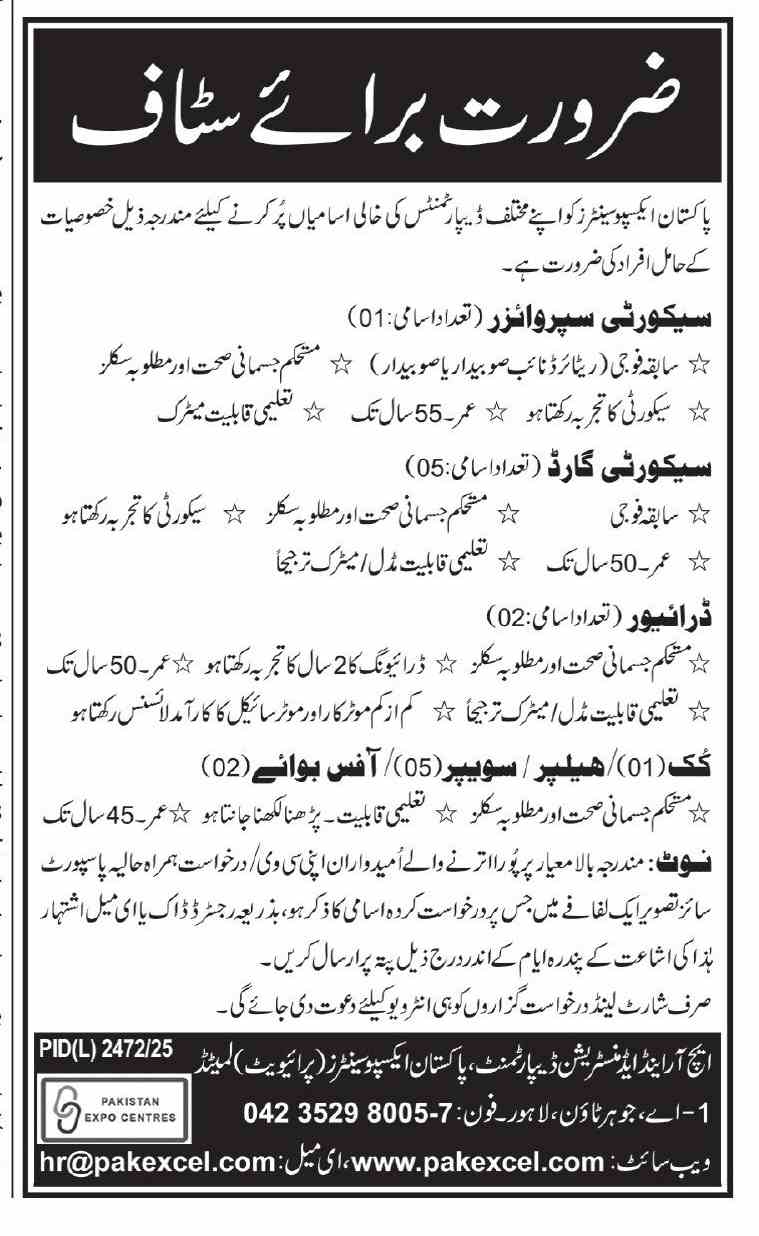 ضرورت برائے سٹاف
پاکستان ایکسپو سینٹرز کو اپنے مختلف ڈیپارٹمنٹس کی خالی اسامیاں پُر کرنے کیلئے مندرجہ ذیل خصوصیات
کے حامل افراد کی ضرورت ہے۔
سیکورٹی سپروائزر (تعداد اسامی:01)
☆ سابقہ فوجی (ریٹائرڈ نائب صوبیدار یا صوبیدار) ☆ مستحکم جسمانی صحت اور مطلوبہ سکلز
☆ سیکورٹی کا تجربہ رکھتا ہو ☆ عمر۔55 سال تک ☆ تعلیمی قابلیت میٹرک
سیکورٹی گارڈ (تعداد اسامی:05)
☆ سابقہ فوجی ☆ مستحکم جسمانی صحت اور مطلوبہ سکلز ☆ سیکورٹی کا تجربہ رکھتا ہو
☆ عمر۔50 سال تک ☆ تعلیمی قابلیت مڈل/میٹرک ترجیحاً
ڈرائیور (تعداد اسامی:02)
☆ مستحکم جسمانی صحت اور مطلوبہ سکلز ☆ ڈرائیونگ کا 2 سال کا تجربہ رکھتا ہو ☆ عمر۔50 سال تک
☆ تعلیمی قابلیت مڈل/میٹرک ترجیحاً ☆ کم از کم موٹر کار اور موٹر سائیکل کا کارآمد لائسنس رکھتا ہو
کُک (01)/ھیلپر / سویپر (05)/ آفس بوائے (02)
☆ مستحکم جسمانی صحت اور مطلوبہ سکلز ☆ تعلیمی قابلیت۔ پڑھنا لکھنا جانتا ہو ☆ عمر۔45 سال تک
نوٹ: مندرجہ بالا معیار پر پُورا اترنے والے اُمیدواران اپنی سی وی/ درخواست ہمراہ حالیہ پاسپورٹ
سائز تصویر ایک لفافے میں جس پر درخواست کردہ اسامی کا ذکر ہو، بذریعہ رجسٹرڈ ڈاک یا ای میل اشتہار
ہٰذا کی اشاعت کے پندرہ ایام کے اندر درج ذیل پتہ پر ارسال کریں۔
صرف شارٹ لینڈ درخواست گزاروں کو ہی انٹرویو کیلئے دعوت دی جائے گی۔
PID(L) 2472/25
ایچ آر اینڈ ایڈمنسٹریشن ڈیپارٹمنٹ، پاکستان ایکسپو سینٹرز (پرائیویٹ) لمیٹڈ
PAKISTAN
EXPO CENTRES
1-اے، جوہر ٹاؤن، لاہور۔ فون: 042 3529 8005-7
ویب سائٹ: www.pakexcel.com، ای میل: hr@pakexcel.com